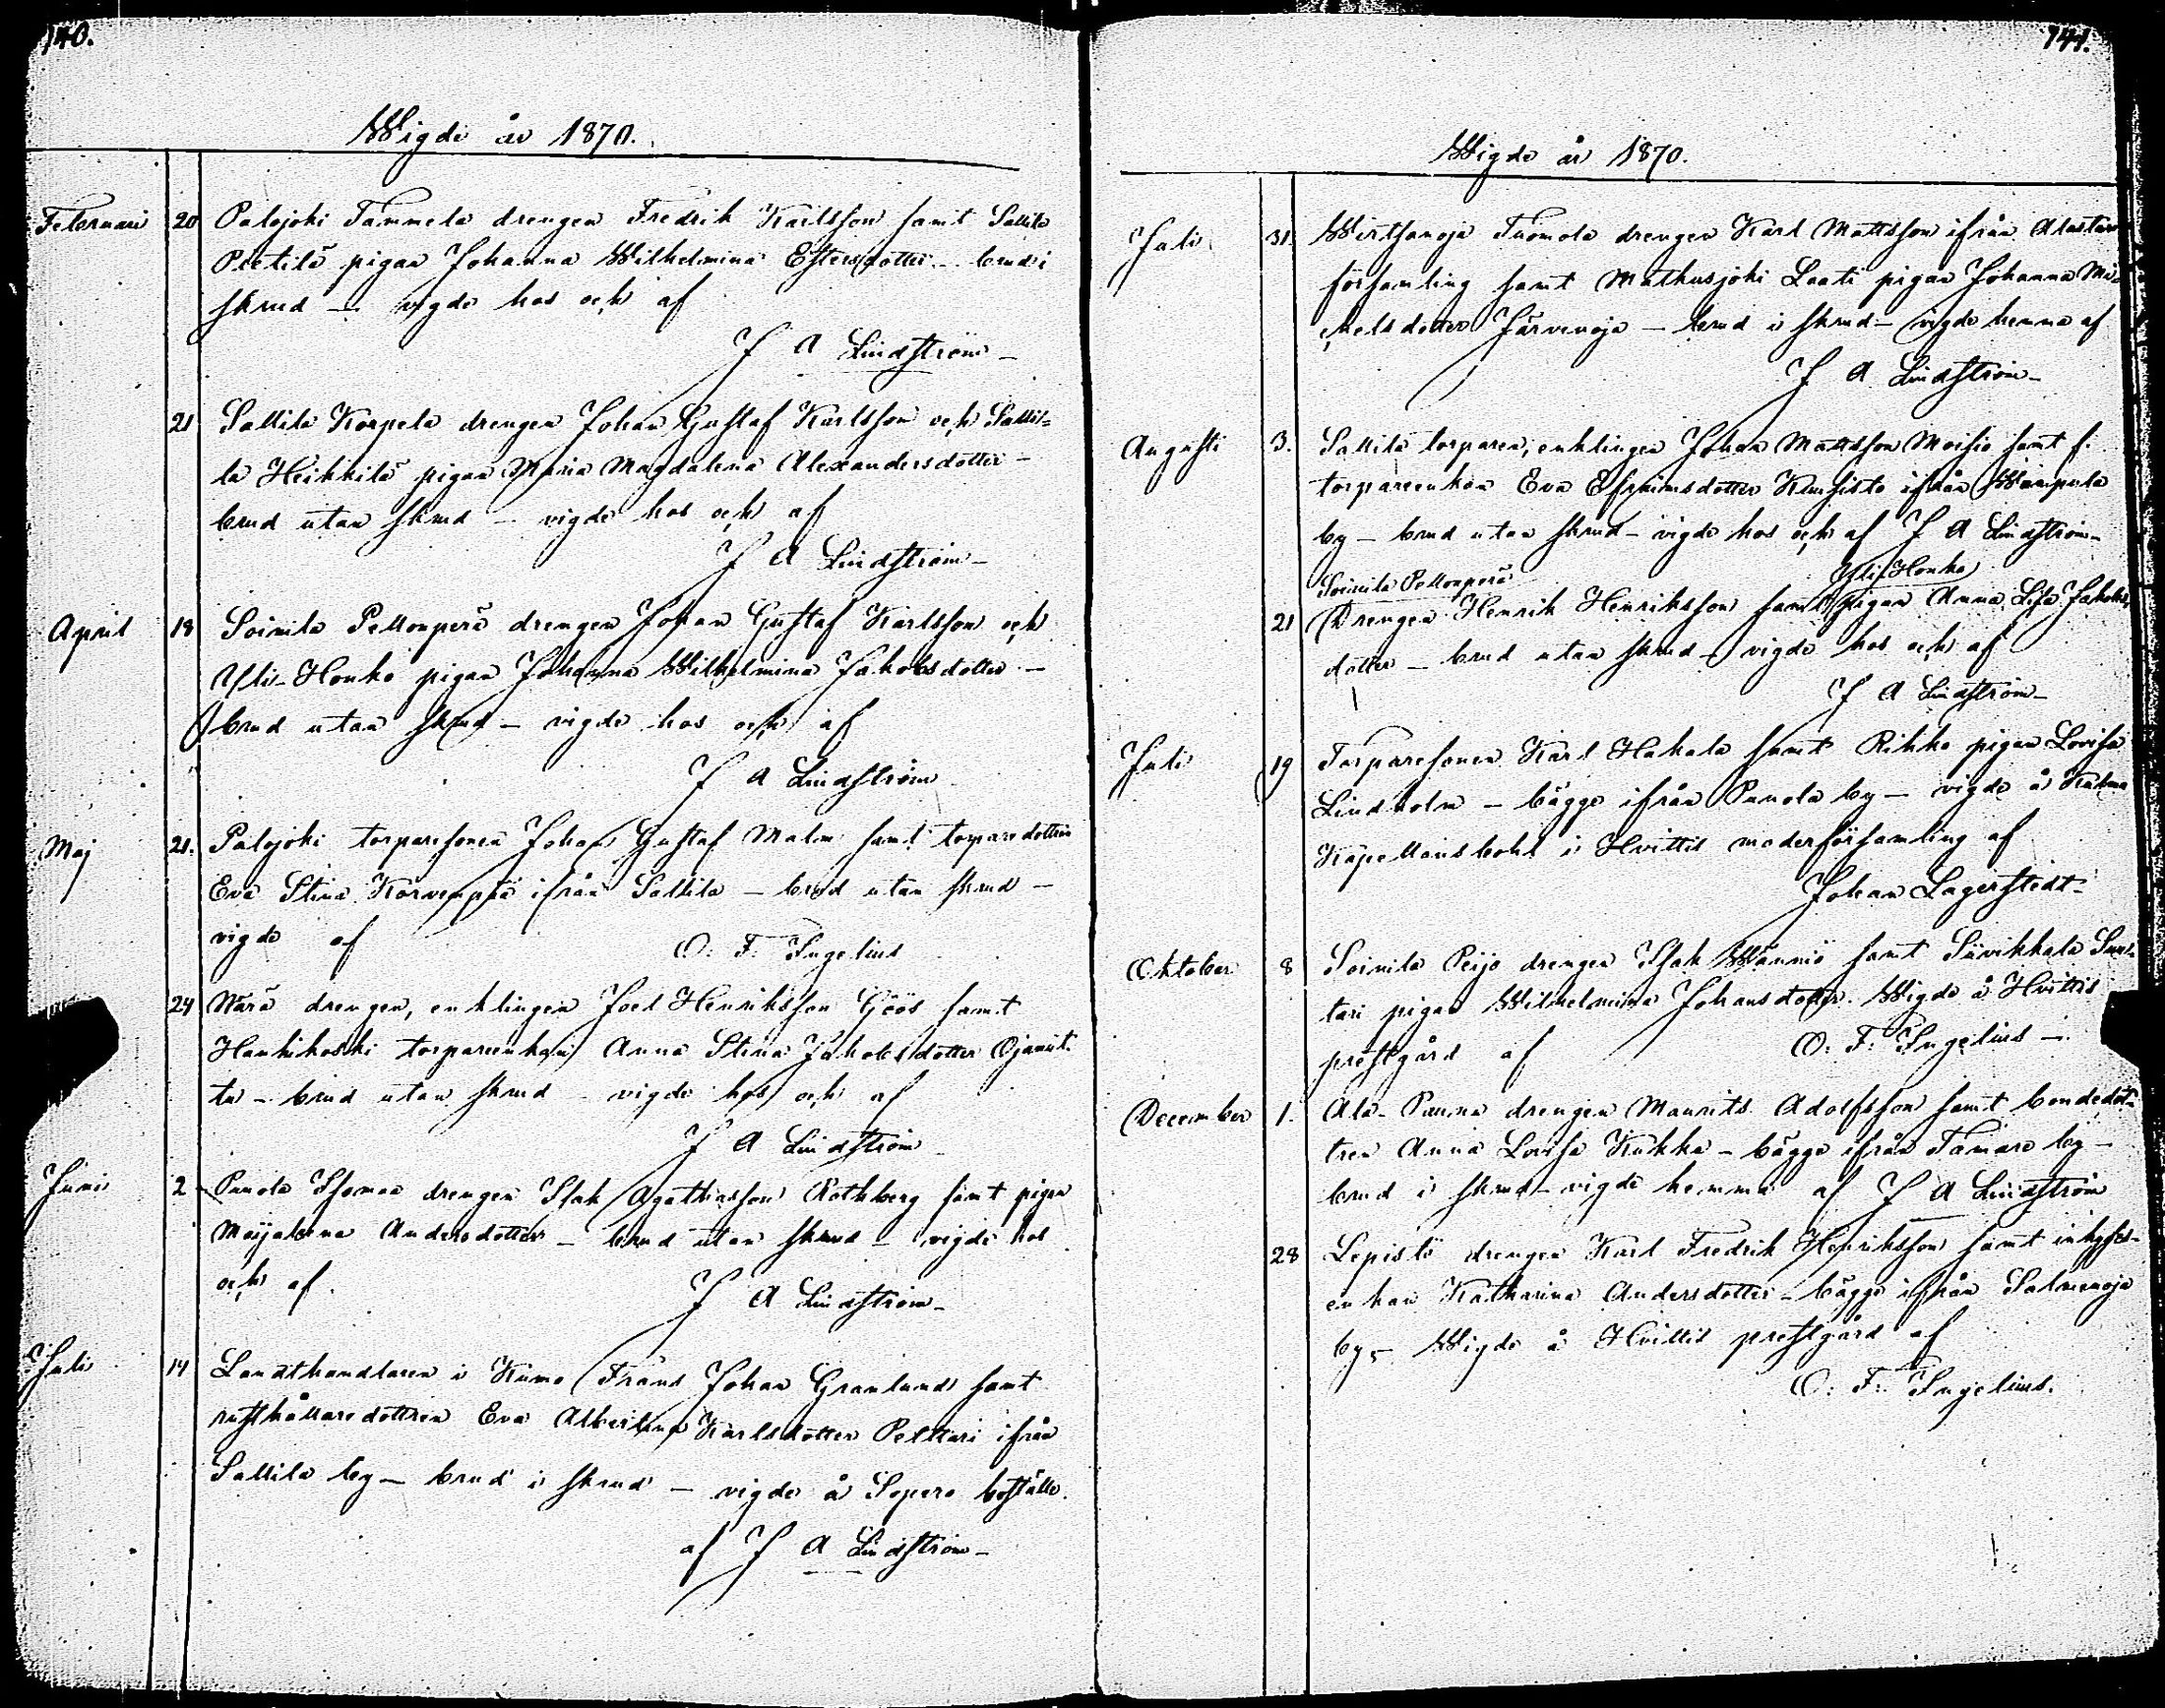 140.
Wigde år 1870.
Februari 20 Palojoki Tammela drengen Fredrik Karlsson samt Sallila
Pietilä pigan Johanna Wilhelmina Estersdotter - brud i
skrud - vigde hos och af
J A Lindström -
21 Sallila Korpela drengen Johan Gustaf Karlsson och Sallil=
la Heikkilä pigan Maria Magdalena Alexandersdotter -
brud utan skrud - vigde hos och af
J A Lindström -
April 18 Soinila Pellonperä drengen Johan Gustaf Karlsson och
Yli-Honko pigan Johanna Wilhelmina Jakobsdotter -
brud utan skrud - vigde hos och af
J A Lindström
Maj 21. Palojoki torparesonen Johan Gustaf Malm samt torparedottren
Eva Stina Korvenpää ifrån Sallila - brud utan skrud -
vigde af O. F. Ingelius
24 drengen, enklingen Joel Henriksson Göös samt
Hankikoski torpareenkan Anna Stina Jakobsdotter Ojanit-
tu - brud utan skrud - vigde hos och af
J A Lindström
Juni 2 Punola drengen Isak Agathiasson Rothberg samt pigan
Majalena Andersdotter - brud utan skrud - vigde hos
och af. J A Lindström -
Juli 14 Landthandlaren i Kumo Frans Johan Granlund samt
rusthållaredottren Eva Albertina Karlsdotter Pelttari ifrån
Sallila by - brud i skrud - vigde å Sopero boställe.
af J A Lindström -
141.
Wigde år 1870.
Juli 31. Wirtsanoja Tuomola drengen Karl Mattsson ifrån Alastaro
församling samt Mathusjoki Laati pigan Johanna Mi-
chelsdotter Järvenoja - brud i skrud - vigde hemma af
J A Lindström -
Augusti 3. Sallila torparen, enklingen Johan Mattsson Moisio samt f.
torpareenkan Eva Efraimsdotter Kursisto ifrån Wampula
by - brud utan skrud - vigde hos och af J A Lindström -
Soinila Pellonperä Yli-Honko
21 Drengen Henrik Henriksson samt pigan Anna Lisa Jakobs-
dotter - brud utan skrud - vigde hos och af
J A Lindström -
Juli 19 Torparesonen Karl Hakala samt Rikko pigan Lovisa
Lindholm - bägge ifrån Punola by - vigde å
Kapellansbohl i Hvittis moderförsamling af
Johan Lagerstedt -
Oktober 8 Soinila Peijo drengen Isak Wänniö samt Suvikkala Sun-
tari pigan Wilhelmina Johansdotter. Wigde å Hvittis
prestgård af O. F. Ingelius -
December 1. Ala-Pauna drengen Maurits Adolfsson samt bondedot-
tren Anna Lovisa Kukka - bägge ifrån Tamare by -
brud i skrud - vigde hemma af J A Lindström
28 Lepistö drengen Karl Fredrik Henriksson samt inhyses-
enkan Katharina Andersdotter - bägge ifrån Salmenoja
by - Wigde å Hvittis prestgård af
O. F. Ingelius.